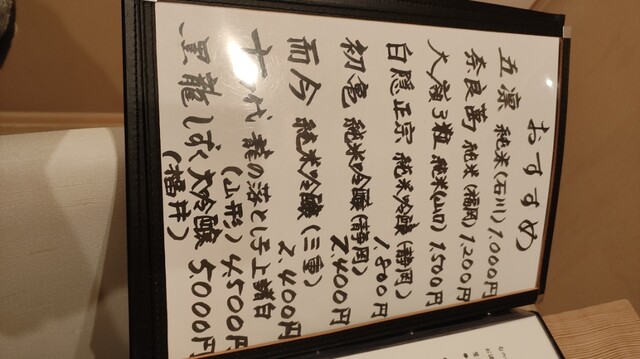 おすすめ
五凛 純米(石川) 1.000円
奈良萬 純米(福岡) 1.200円
大嶺3粒 純米(山口) 1.500円
白隠正宗 純米吟醸(静岡) 1.800円
初亀 純米吟醸(静岡) 2.400円
而今 純米吟醸(三重) 2.400円
十四代 龍の落とし子上諸白(山形) 4500円
黒龍しずく大吟醸(福井) 5000円